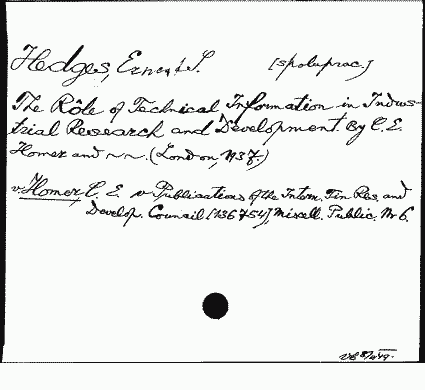 Hedges, Ernest S. [spoluprac.]
The Rôle of Technical Information in Indus-
trial Research and Development. By C. E.
Homer and ~~. (London, 1937.)
v. Homer, C. E. v Publications of the Intern. Tin Res. and
Develop. Council [136754], Miscell. Public. Nr 6.